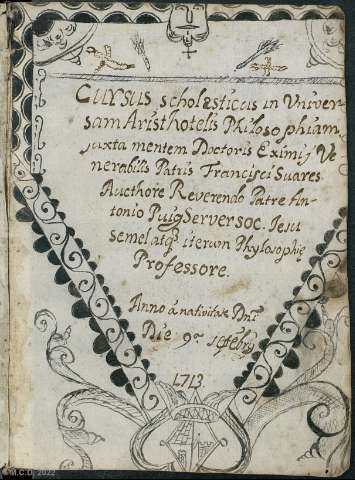 Cursus scholasticus in Univer-
sam Aristhotelis Philosophiam,
juxta mentem Doctoris Eximij Ve-
nerabilis Patris Francisci Suares
Aucthore Reverendo Patre An-
tonio Puigserver soc. Iesu
semel atq; iterum Phylosophię
Professore.
Anno á nativitate Dni.
Die 9ª
1713
M.C.D. 2022